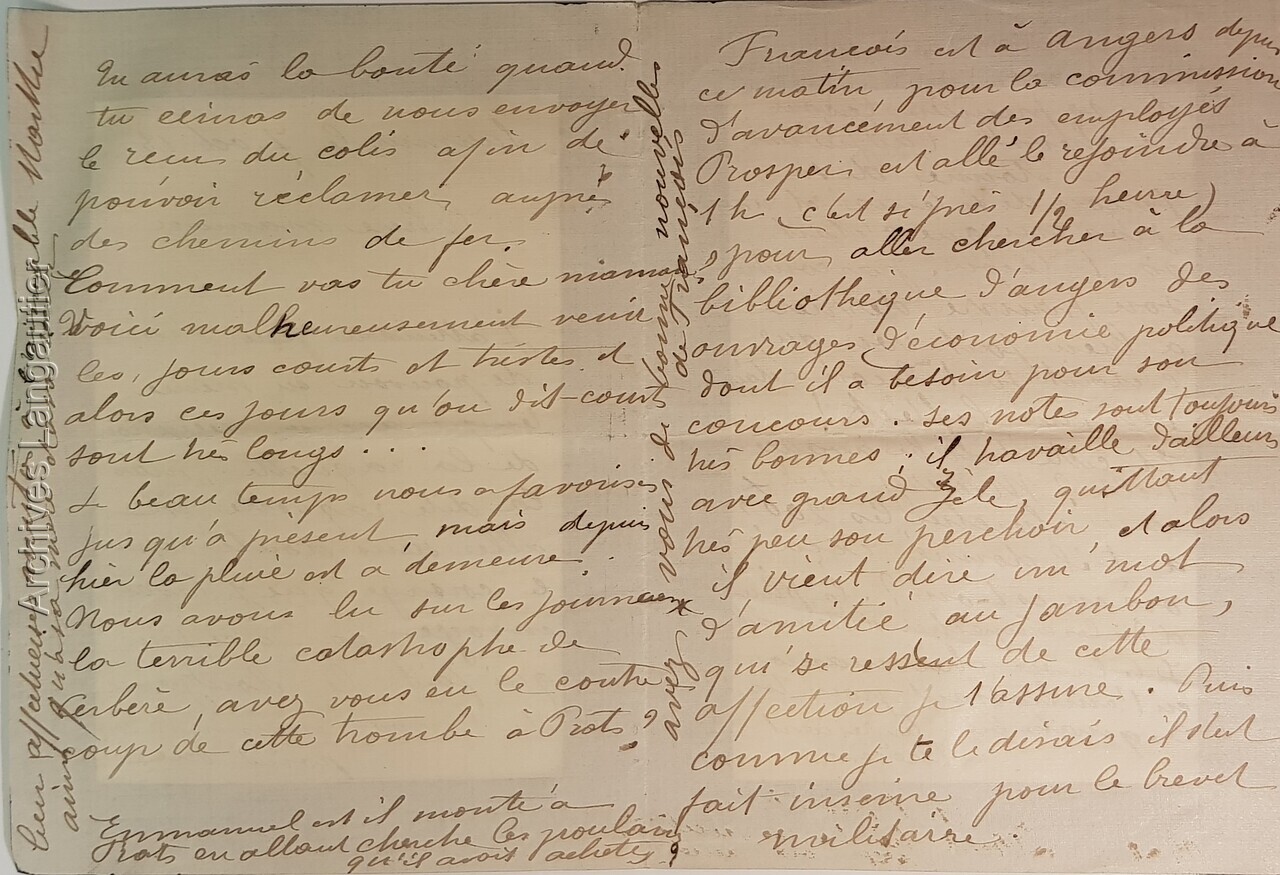 Tu auras la bonté quand
tu écriras de nous envoyer
le recus du colis afin de
pouvoir réclamer, auprès
des chemins de fer.
Comment vas tu chère maman,
Voici malheureusement venir
les, jours courts et tristes et
alors ces jours qu'on dit-court
sont très longs...
Le beau temps nous a favorisé
jusqu'à présent, mais depuis
hier la pluie est à demeure.
Nous avons lu sur les journeaux
la terrible catastrophe de
Cerbère, avez vous eu le contre
coup de cette trombe à Prats?
Emmanuel est il monté à
Prats en allant cherche les poulains
qu'il avait achetés?
avez vous de bonne nouvelles
de François
François est à Angers depuis
ce matin, pour la commission
d'avancement des employés
Prosper, est allé le rejoindre à
1h, (c'est si près 1/2 heure)
, pour, aller chercher à la
bibliothèque d'angers des
ouvrages d'économie politique
dont il a besoin pour son
concours. ses notes sont toujours
très bonnes; il travaille d'ailleurs
avec grand zèle, quittant
très peu son perchoir, et alors
il vient dire un mot
d'amitié au jambon,
qui se ressent de cette
affection je t'assure. Puis
comme je te le disais il s'est
fait inscrire pour le brevet
militaire.
affectueux
Marthe
Archives Langautier